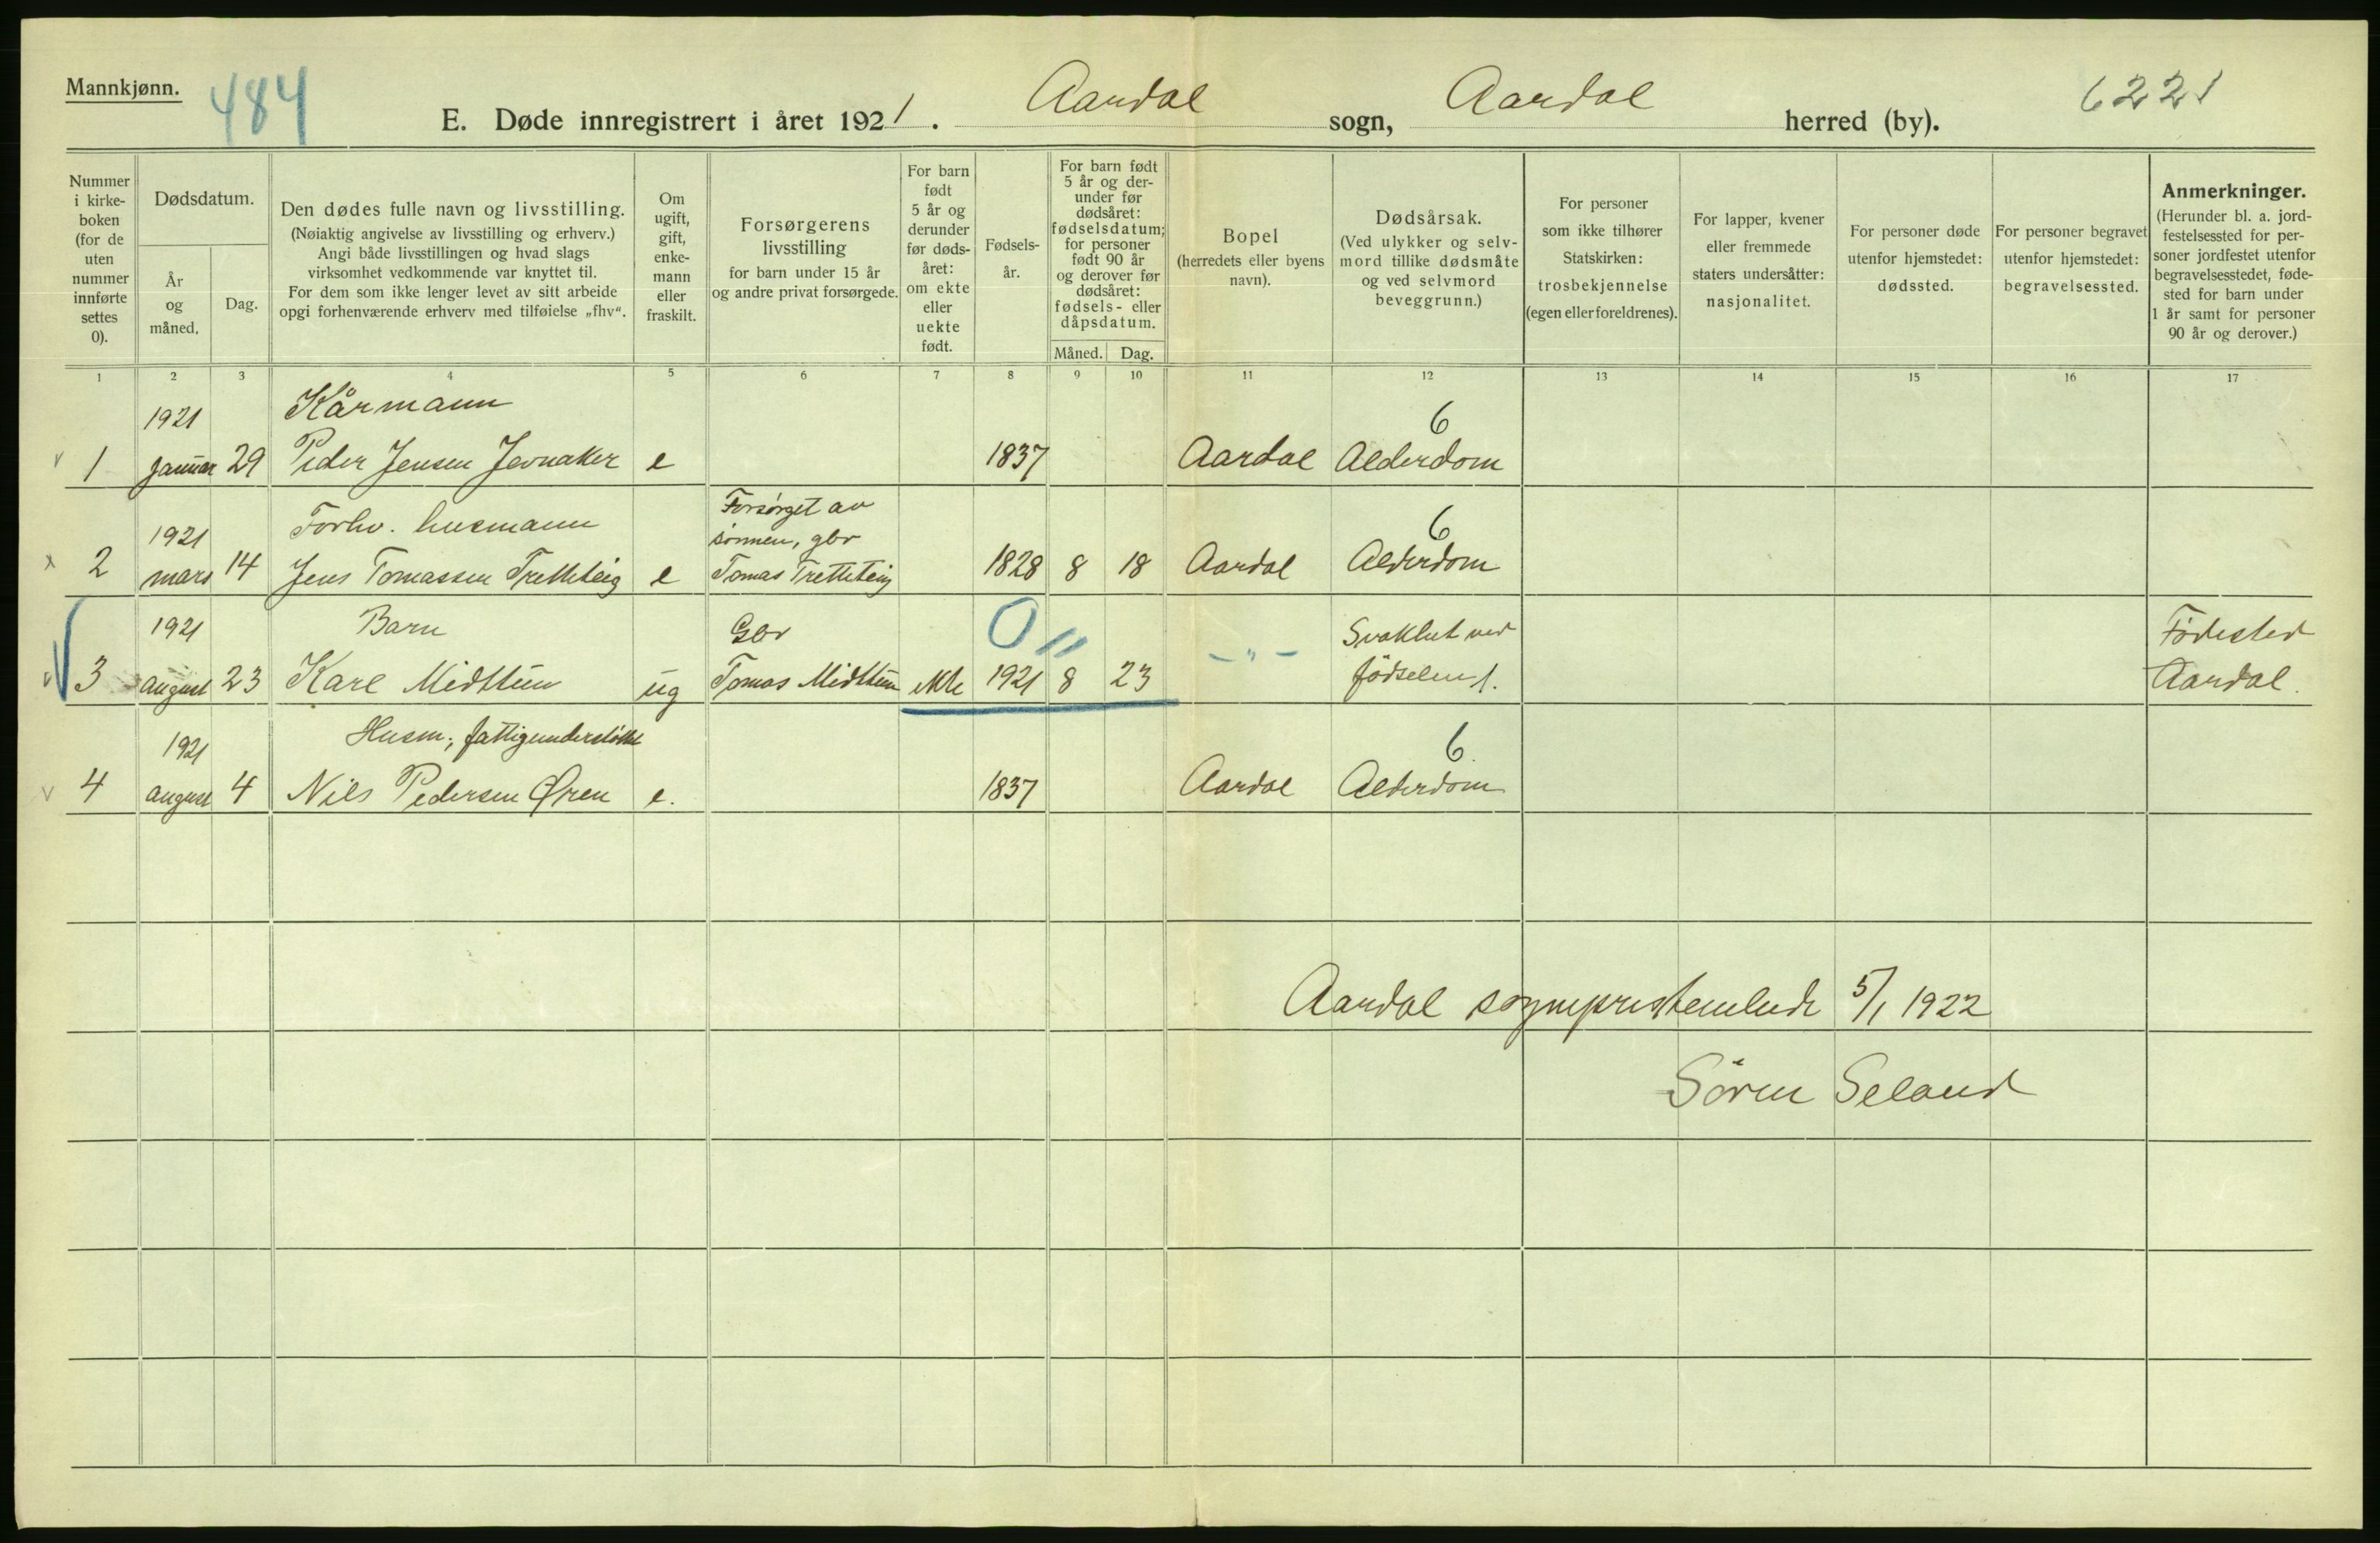 Mannkjønn.
484
E. Døde innregistrert i året 1921. Aardal sogn, Aardal herred (by).
6221
Nummer
i kirke-
boken
(for de
uten
nummer
innførte
settes
0).
Dødsdatum.
År
og
måned.
Dag.
Den dødes fulle navn og livsstilling.
(Nøiaktig angivelse av livsstilling og erhverv.)
Angi både livsstillingen og hvad slags
virksomhet vedkommende var knyttet til.
For dem som ikke lenger levet av sitt arbeide
opgi forhenværende erhverv med tilføielse „fhv“.
Om
ugift,
gift,
enke-
mann
eller
fraskilt.
Forsørgerens
livsstilling
for barn under 15 år
og andre privat forsørgede.
For barn
født
5 år og
derunder
før døds-
året:
om ekte
eller
uekte
født.
Fødsels-
år.
For barn født
5 år og der-
under før
dødsåret:
fødselsdatum;
for personer
født 90 år
og derover før
dødsåret:
fødsels- eller
dåpsdatum.
Måned. Dag.
Bopel
(herredets eller byens
navn).
Dødsårsak.
(Ved ulykker og selv-
mord tillike dødsmåte
og ved selvmord
beveggrunn.)
For personer
som ikke tilhører
Statskirken:
trosbekjennelse
(egen eller foreldrenes).
For lapper, kvener
eller fremmede
staters undersåtter:
nasjonalitet.
For personer døde
utenfor hjemstedet:
dødssted.
For personer begravet
utenfor hjemstedet:
begravelsessted.
Anmerkninger.
(Herunder bl. a. jord-
festelsessted for per-
soner jordfestet utenfor
begravelsesstedet, føde-
sted for barn under
1 år samt for personer
90 år og derover.)
1 2 3 4 5 6 7 8 9 10 11 12 13 14 15 16 17
1921 Kårmann 6
1 januar 29 Peder Jensen Jevnaker e 1837 Aardal Alderdom
1921 Forhv. husmann Forsørget av sønnen, gbr 6
2 mars 14 Jens Tomassen Tretteteig e Tomas Tretteteig 1828 8 18 Aardal Alderdom
1921 Barn Gbr 0 " Svakhet ved Födested
3 august 23 Karl Midttun ug Tomas Midttun ekte 1921 8 23 - " - födselen 1. Aardal.
1921 Husm., fattigunderstøttet 6
4 august 4 Nils Pedersen Øren e. 1837 Aardal Alderdom
Aardal sogneprestembede 5/1 1922
Sören Seland